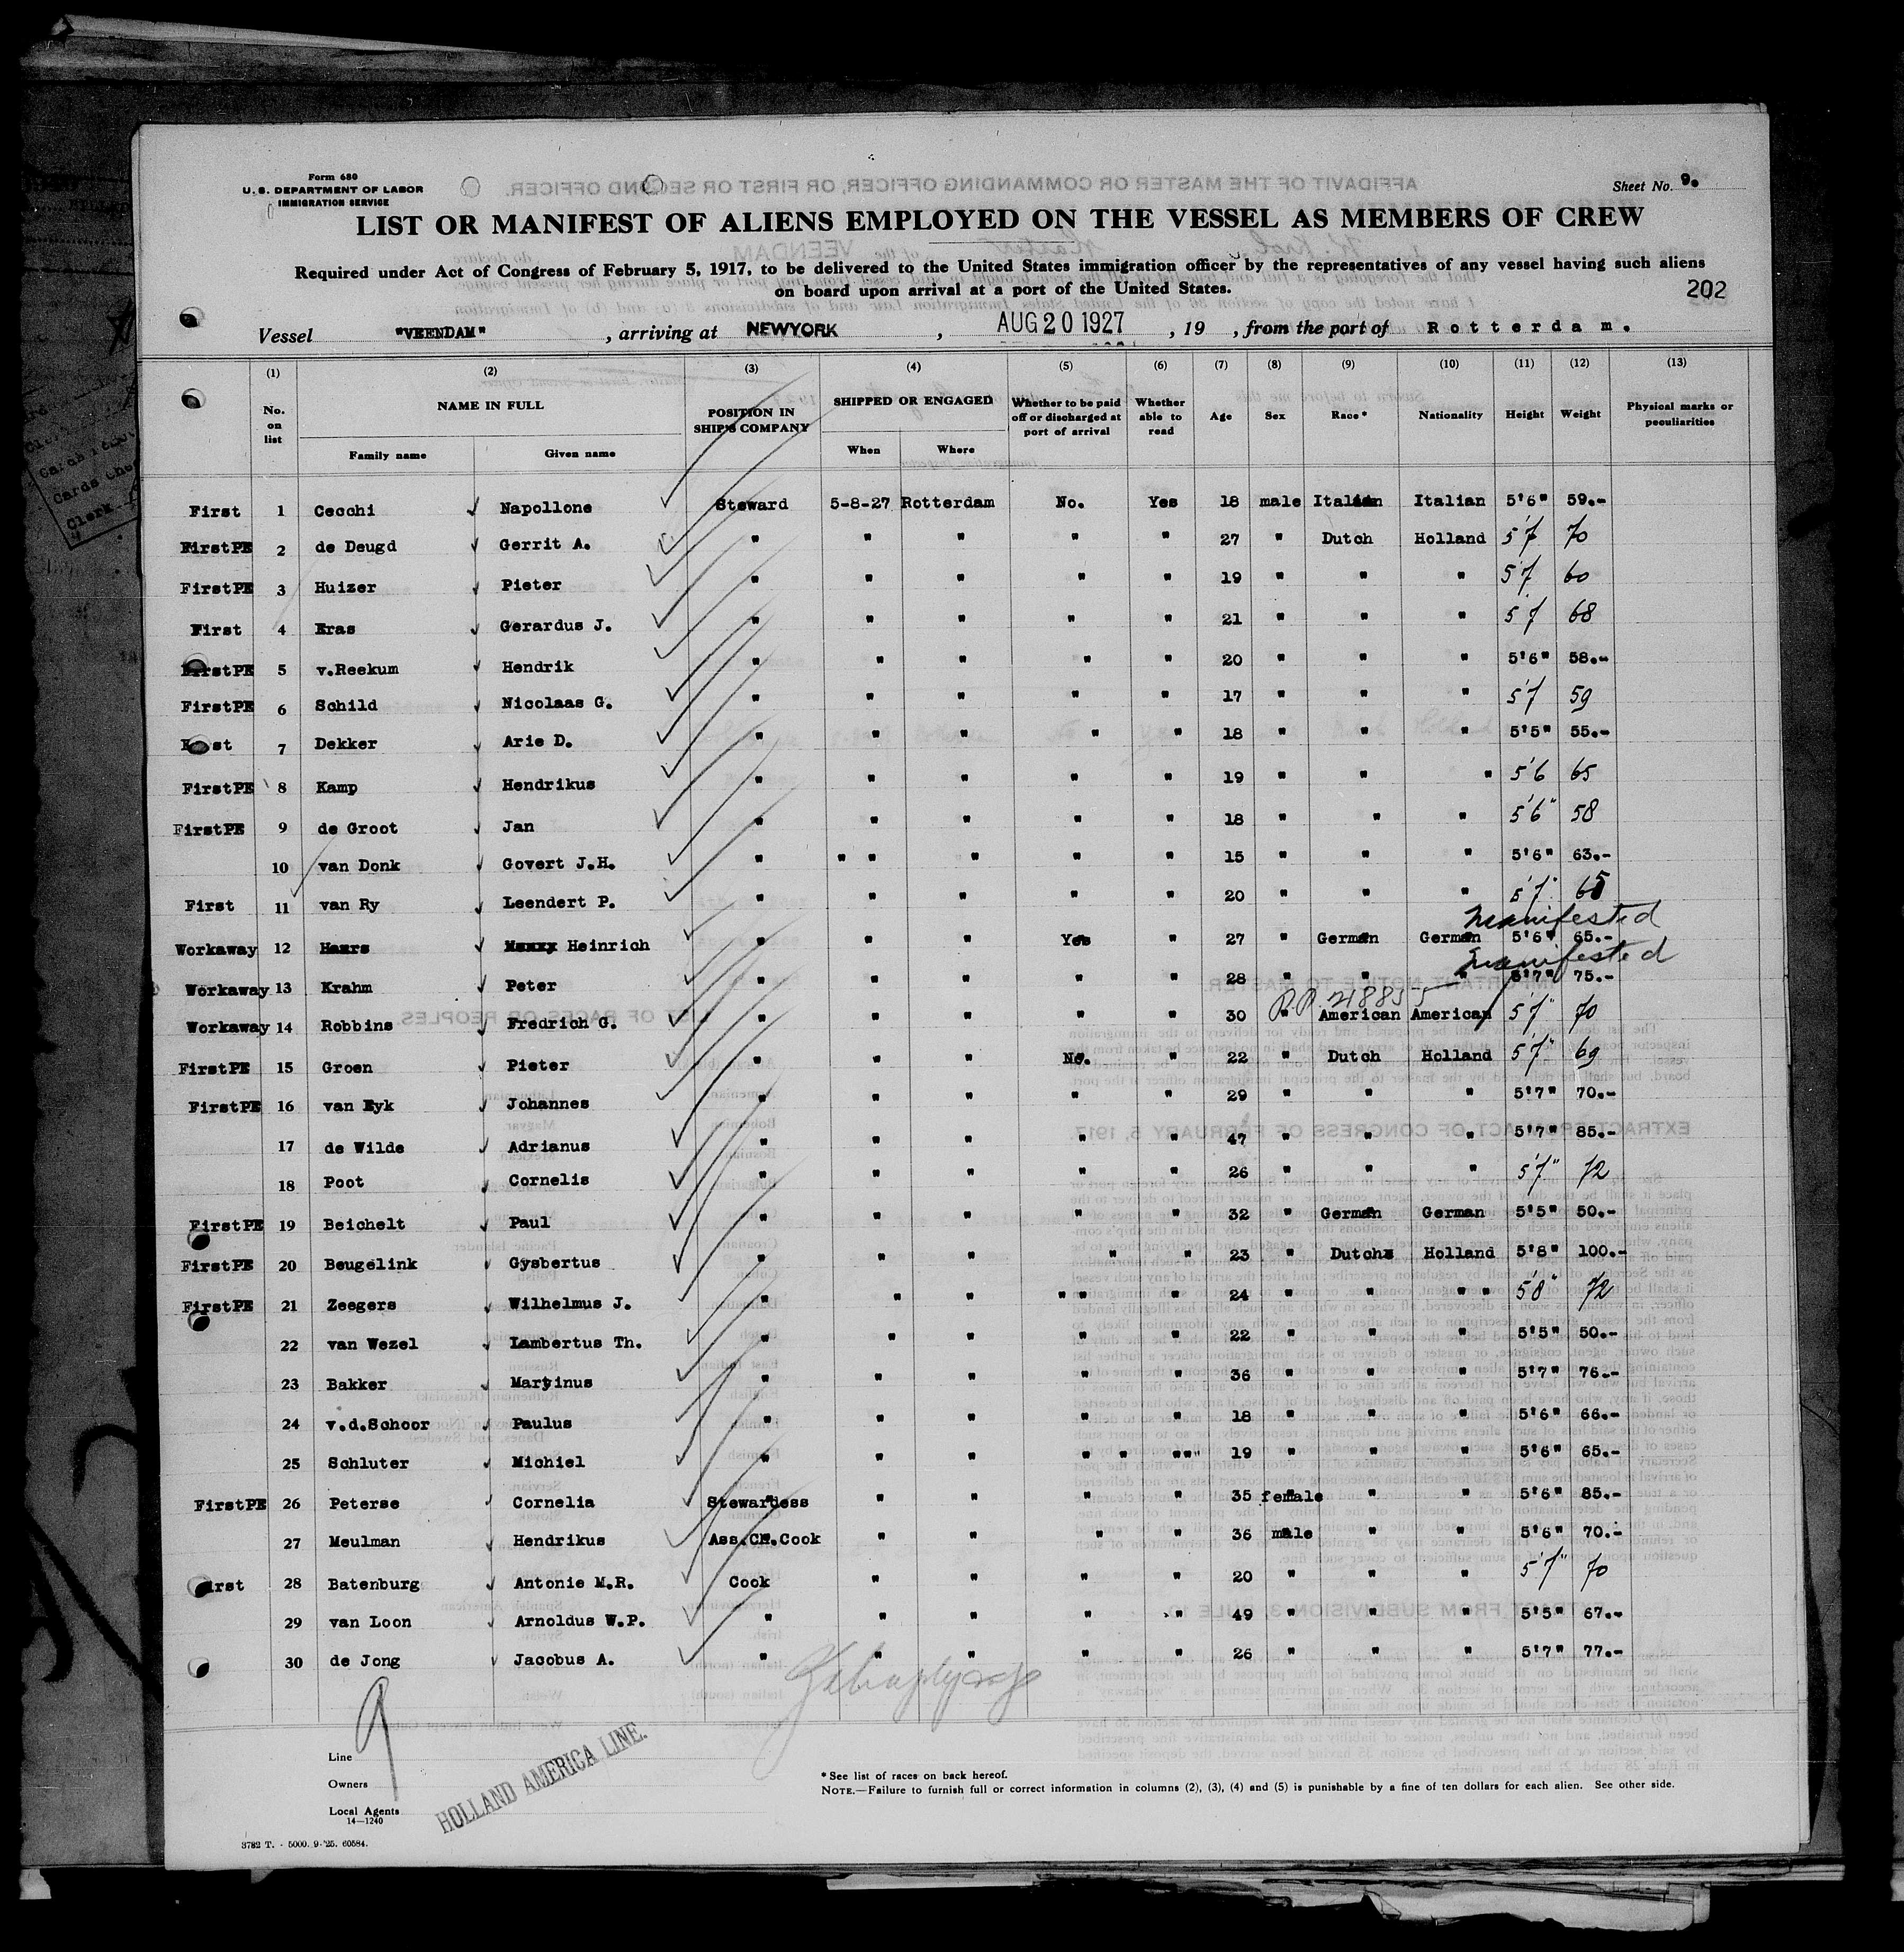 Form 680
U. S. DEPARTMENT OF LABOR
IMMIGRATION SERVICE
Sheet No. 9.
LIST OR MANIFEST OF ALIENS EMPLOYED ON THE VESSEL AS MEMBERS OF CREW
Required under Act of Congress of February 5, 1917, to be delivered to the United States immigration officer by the representatives of any vessel having such aliens
on board upon arrival at a port of the United States.
202
Vessel "VEENDAM" , arriving at NEWYORK , AUG 20 1927 , 19 , from the port of Rotterdam.
(1) (2) (3) (4) (5) (6) (7) (8) (9) (10) (11) (12) (13)
No. on list NAME IN FULL Family name Given name POSITION IN SHIP'S COMPANY SHIPPED OR ENGAGED When Where Whether to be paid off or discharged at port of arrival Whether able to read Age Sex Race* Nationality Height Weight Physical marks or peculiarities
First 1 Cecchi Napollone Steward 5-8-27 Rotterdam No. Yes 18 male Italian Italian 5'6" 59.-
FirstPE 2 de Deugd Gerrit A. " " " " " 27 " Dutch Holland 5'7 70
FirstPE 3 Huizer Pieter " " " " " 19 " " " 5'7 60
First 4 Eras Gerardus J. " " " " " 21 " " " 5'7 68
FirstPE 5 v.Reekum Hendrik " " " " " 20 " " " 5'6" 58.-
FirstPE 6 Schild Nicolaas G. " " " " " 17 " " " 5'7 59
7 Dekker Arie D. " " " " " 18 " " " 5'5" 55.-
FirstPE 8 Kamp Hendrikus " " " " " 19 " " " 5'6 65
FirstPE 9 de Groot Jan " " " " " 18 " " " 5'6" 58
10 van Donk Govert J.H. " " " " " " 15 " " " 5'6" 63.-
First 11 van Ry Leendert P. " " " " " 20 " " " 5'7" 65
Manifested
Workaway 12 Heinrich " " " Yes " 27 " German German 5'6" 65.-
Manifested
Workaway 13 Krahm Peter " " " " " 28 " " " 5'7" 75.-
P.P. 218855
Workaway 14 Robbins Fredrich G. " " " " " 30 " American American 5'7" 70
FirstPE 15 Groen Pieter " " " No. " 22 " Dutch Holland 5'7" 69
FirstPE 16 van Eyk Johannes " " " " " 29 " " " 5'7" 70.-
17 de Wilde Adrianus " " " " " 47 " " " 5'7" 85.-
18 Poot Cornelis " " " " " 26 " " " 5'7" 72
FirstPE 19 Beichelt Paul " " " " " 32 " German German 5'5" 50.-
FirstPE 20 Beugelink Gysbertus " " " " " 23 " Dutch Holland 5'8" 100.-
FirstPE 21 Zeegers Wilhelmus J. " " " " " " 24 " " " " 5'8" 72
22 van Wezel Lambertus Th. " " " " " 22 " " " 5'5" 50.-
23 Bakker Martinus " " " " " 36 " " " 5'7" 76.-
24 v.d.Schoor Paulus " " " " " 18 " " " 5'6" 66.-
25 Schluter Michiel " " " " " "" 19 " " " 5'6" 65.-
FirstPE 26 Peterse Cornelia Stewardess " " " " 35 female " " 5'6" 85.-
27 Meulman Hendrikus Ass.CH.Cook " " " " 36 male " " 5'6" 70.-
28 Batenburg Antonie M.R. Cook " " " " 20 " " " 5'7" 70
29 van Loon Arnoldus W.P. " " " " " 49 " " " 5'5" 67.-
30 de Jong Jacobus A. " " " " " 26 " " " 5'7" 77.-
9
Line
Owners
Local Agents
14—1240
HOLLAND AMERICA LINE.
* See list of races on back hereof.
NOTE.—Failure to furnish full or correct information in columns (2), (3), (4) and (5) is punishable by a fine of ten dollars for each alien. See other side.
3782 T. - 5000. 9-'25. 60584.